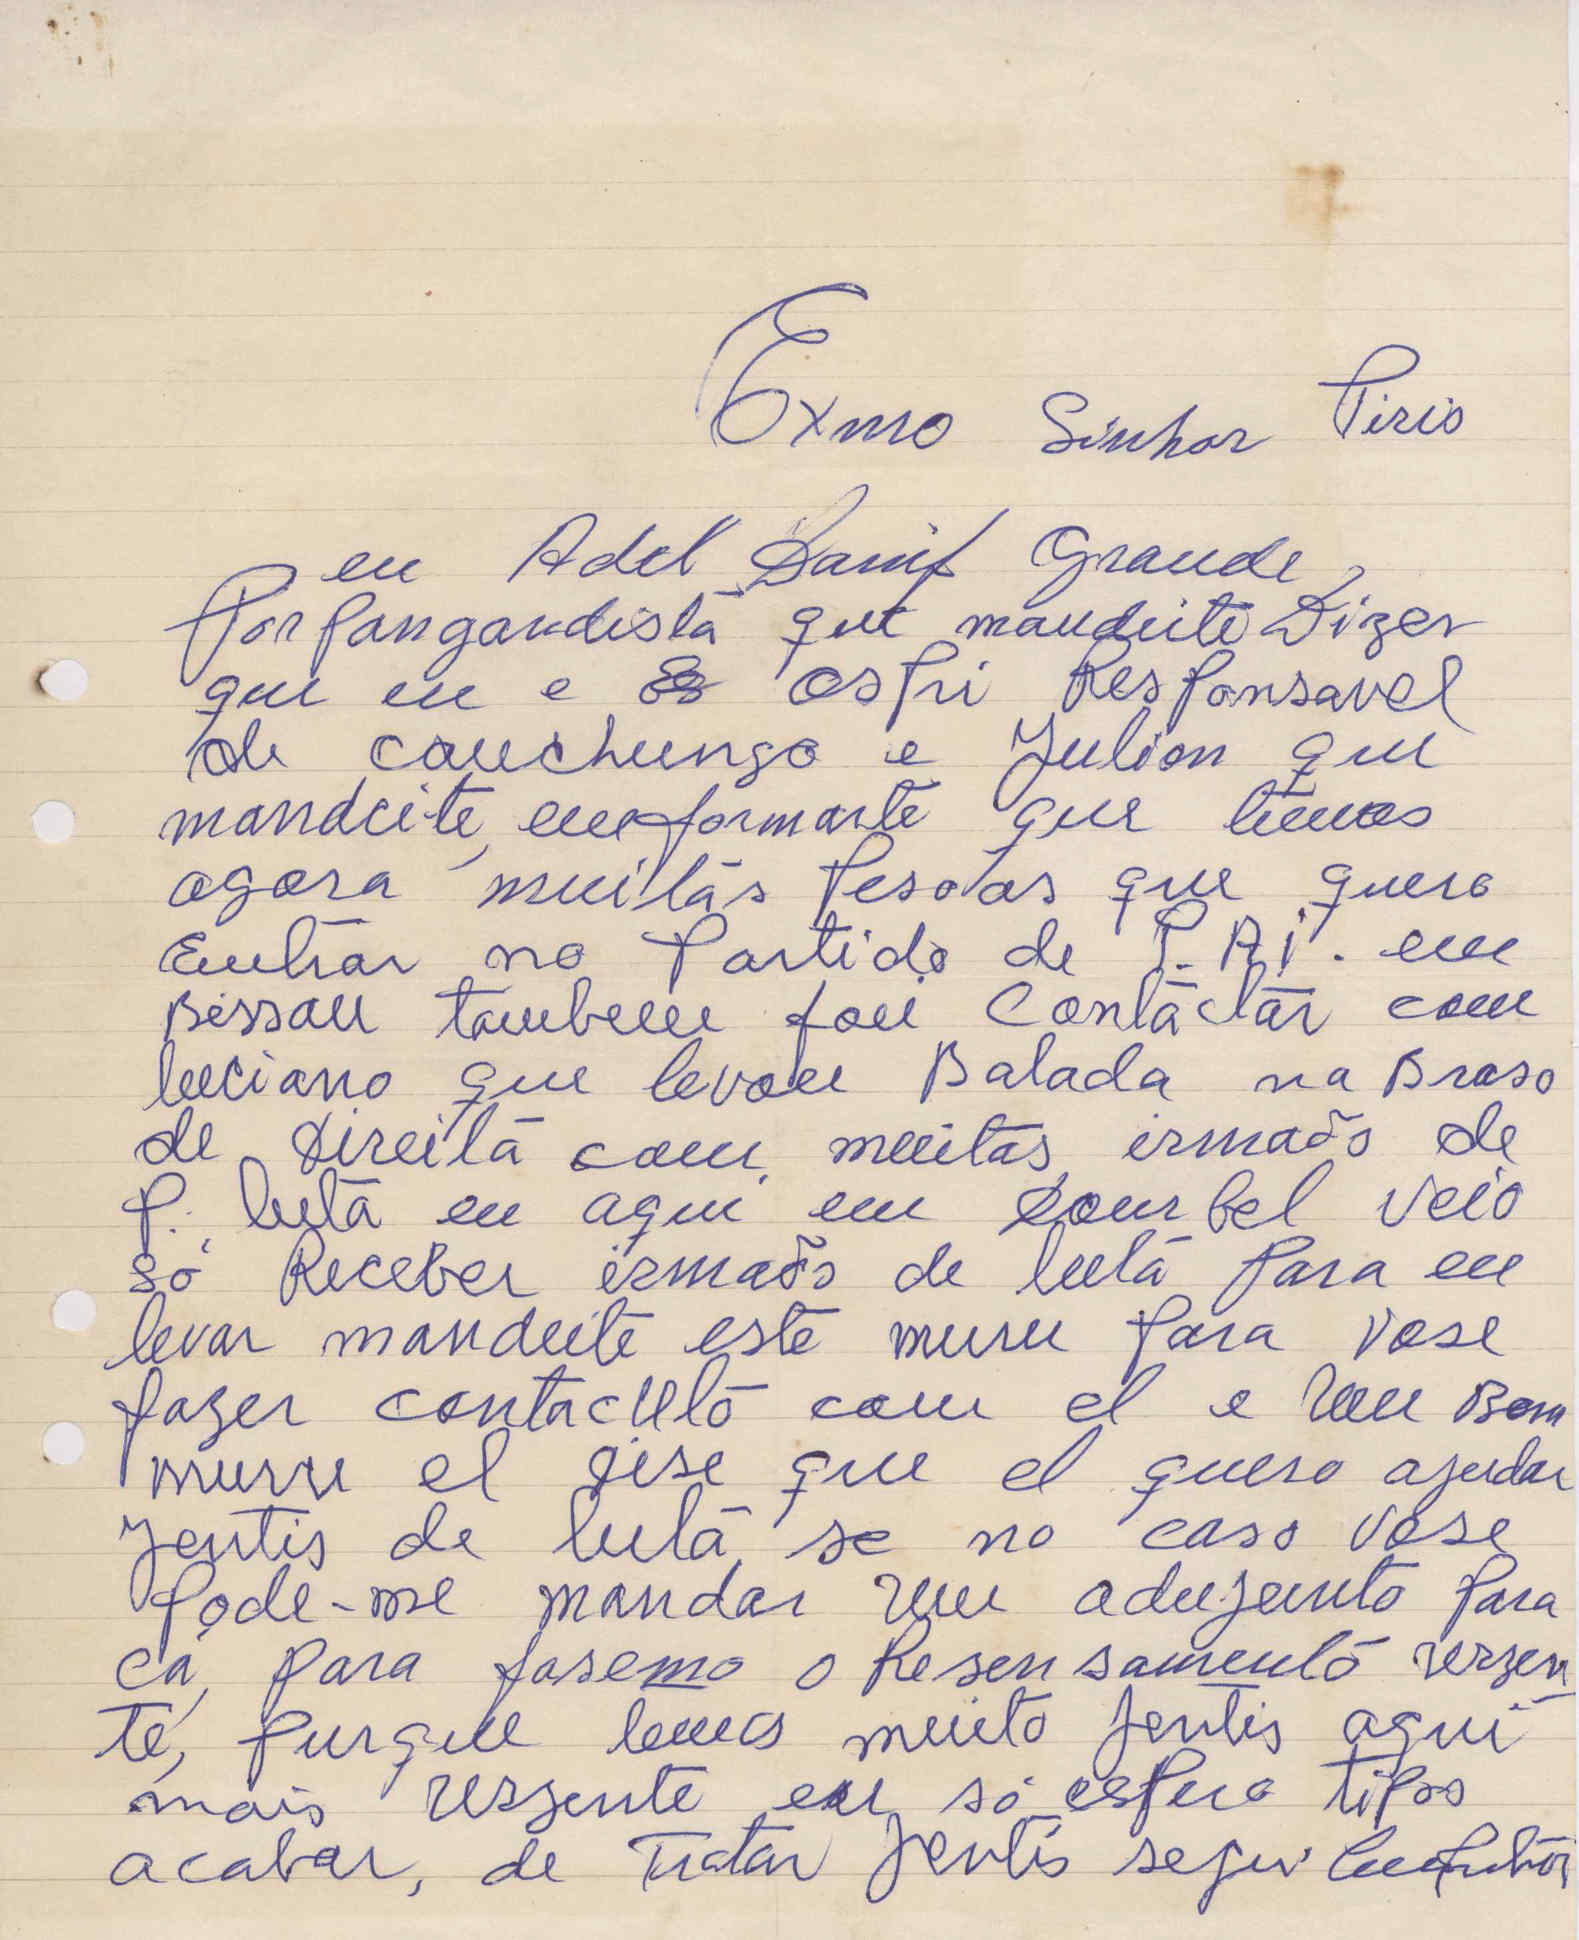 Exmo Sinhor Piris
eu Adel Danif Grande
Porpangandista que mandeite Dizer
que eu e ospri Responsavel
de Cauchungo e Julion que
mandeite, emformarte que temos
agora muitas Pesoas que quero
Entrar no Partido de P.A.I. em
Bissau tambem foui Contactar com
luciano que levou Balada na Braso
de Direita com muitas irmaõs de
P. luta eu aqui em Dourbel veio
só Receber irmaõs de luta para eu
levar mandeite este muru para vose
fazer contacuto com el e um Bom
muru el dise que el quero ajudar
Jentis de luta, se no caso vose
Pode-me mandar um adujunto para
cá, para fasemo o Resensamento urzen
te, purque temos muito Jentis aqui
mais urzente eu só espero tipos
acabar, de Tratar Jentis segui